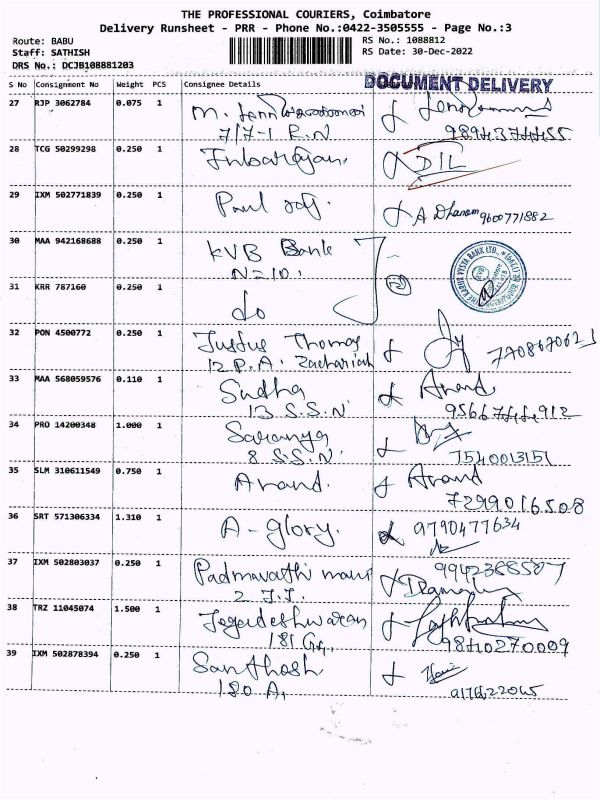 THE PROFESSIONAL COURIERS, Coimbatore
Delivery Runsheet - PRR - Phone No.:0422-3505555 - Page No.:3
Route: BABU
Staff: SATHISH
DRS No.: DCJB108881203
RS No.: 1088812
RS Date: 30-Dec-2022
S No Consignment No Weight PCS Consignee Details
DOCUMENT DELIVERY
27 RJP 3062784 0.075 1 M.
28 TCG 50299298 0.250 1 Inbarajan. DIL
29 IXM 502771839 0.250 1 Paul A Dhanam 9600771882
30 MAA 942168688 0.250 1 KVB Bank
N=10.
THE KARUR VYSYA BANK LTD.,
31 KRR 787160 0.250 1 do
32 PON 4500772 0.250 1 Justus Thomas
12 P.A. Zachariah
33 MAA 568059576 0.110 1 Sudha Anand
13 S.S.N
34 PRO 14200348 1.000 1 Saranya
8 S.S.N. 7540013151
35 SLM 310611549 0.750 1 Anand. Anand
7299016508
36 SRT 571306334 1.310 1 A-glory. 9790477634
37 IXM 502803037 0.250 1 Padmavathi 9942388507
38 TRZ 11045074 1.500 1 Jegadeshwaran
9840270009
39 IXM 502878394 0.250 1 Santhosh
180 A,